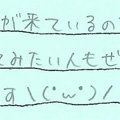 が来ているので
てみたい人もぜ
す\(°ω°)/